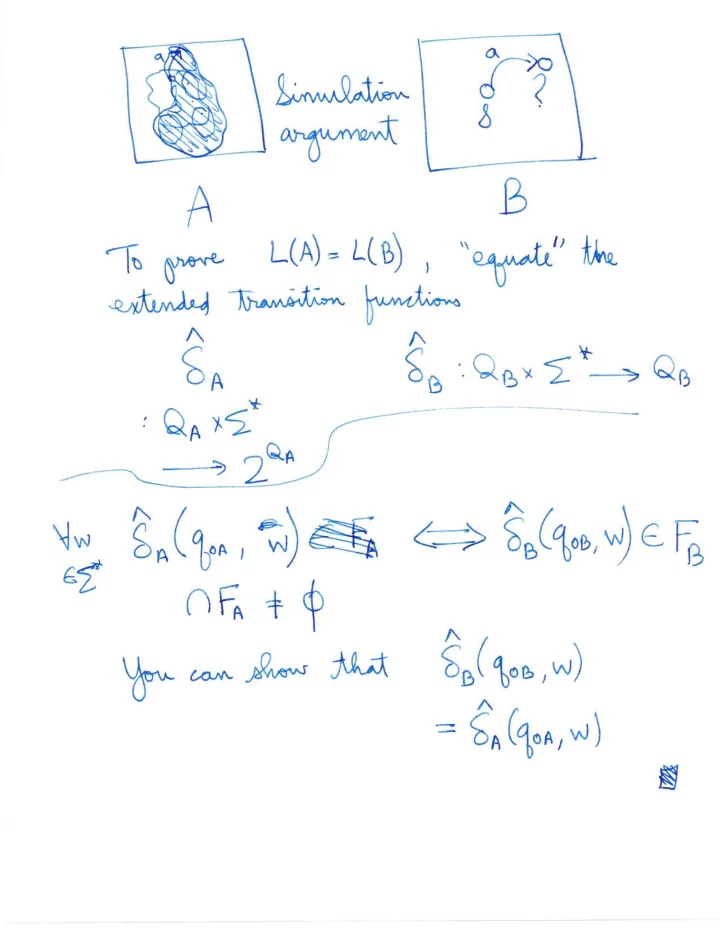 a
Simulation
argument
a
S
?
A
B
To prove L(A) = L(B), "equate" the
extended transition functions
δ̂_A
δ̂_B : Q_B × Σ* ⟶ Q_B
: Q_A × Σ*
⟶ 2^{Q_A}
∀w ∈ Σ* δ̂_A(q_{0A}, w) ⟺ δ̂_B(q_{0B}, w) ∈ F_B
∩ F_A ≠ ϕ
You can show that δ̂_B(q_{0B}, w)
= δ̂_A(q_{0A}, w)